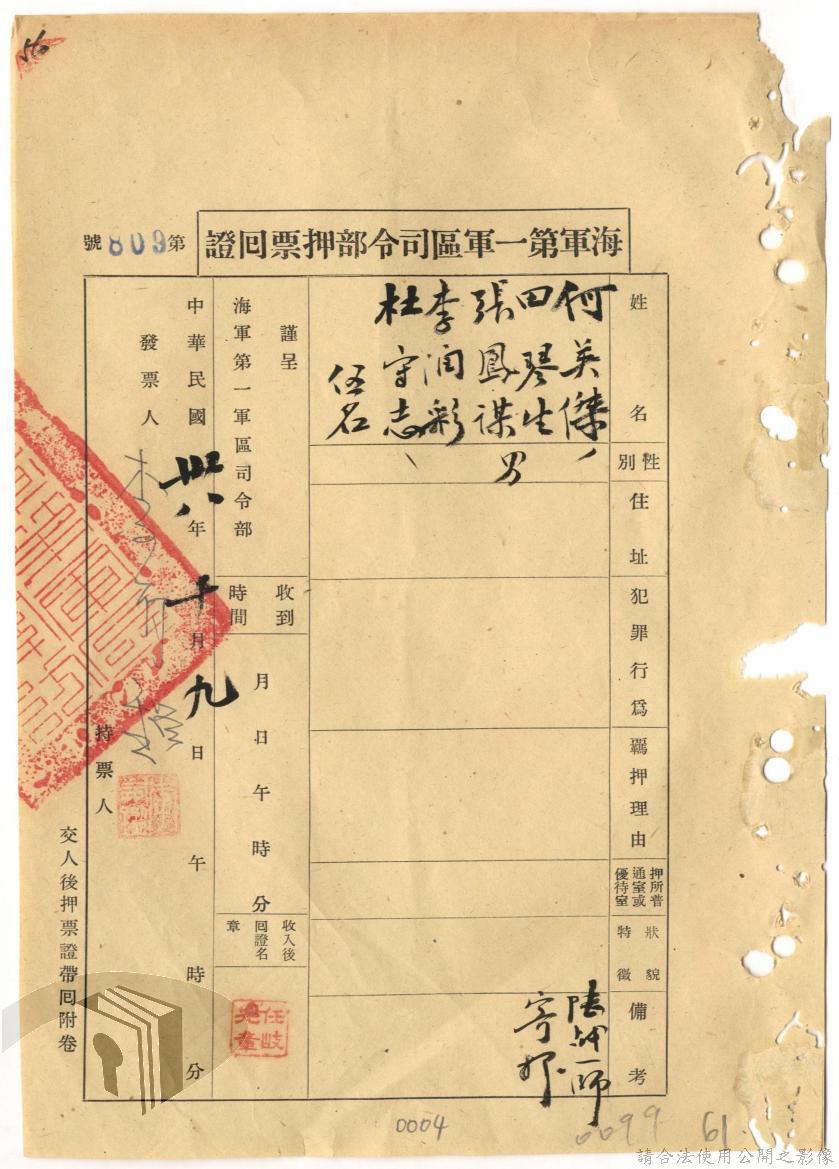 海軍第一軍區司令部押票回證
第809號
姓名
何英傑
田琴生
張鳳祺
李潤彩
杜守志
伍名
性別
男
住址
犯罪行為
羈押理由
押所普通室或優待室
特徵狀貌
備考
寄押
謹呈
海軍第一軍區司令部
收到時間
月日午時分
收入後回證名章
任岐
中華民國卅八年十月九日午時分
發票人
持票人
交人後押票證帶回附卷
0004
0099
61
請合法使用公開之影像